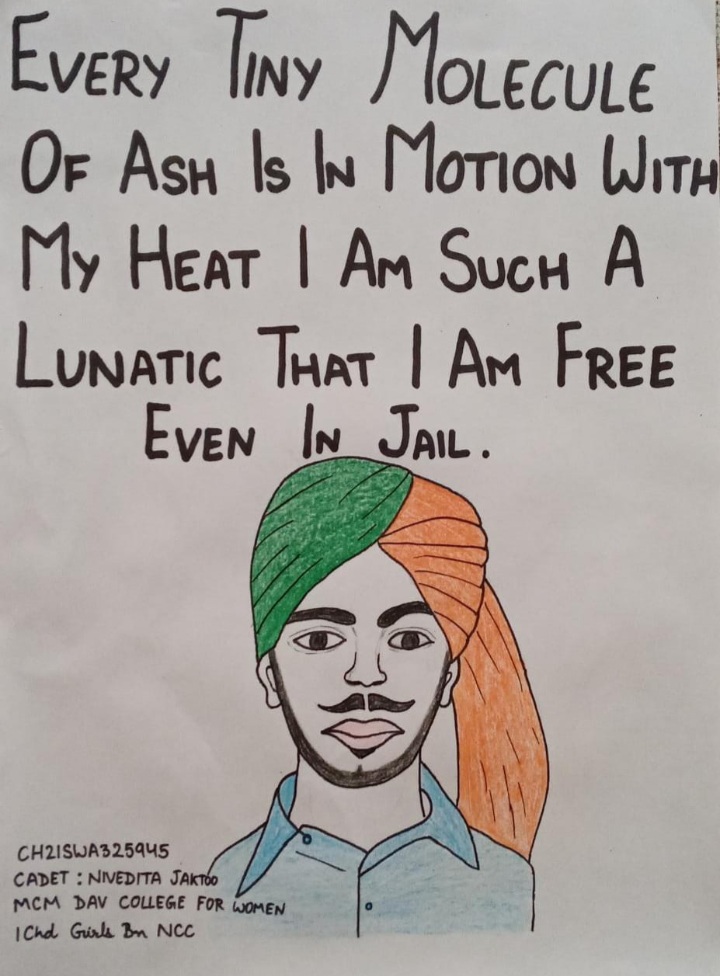 EVERY TINY MOLECULE
OF ASH IS IN MOTION WITH
MY HEAT I AM SUCH A
LUNATIC THAT I AM FREE
EVEN IN JAIL.
CH21SWA325945
CADET : NIVEDITA JAKTOO
MCM DAV COLLEGE FOR WOMEN
1 Chd Girls Bn NCC